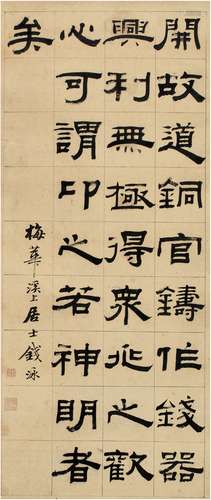 開故道銅官鑄作錢器
興利無極得衆兆之歡
心可謂卬之若神明者
矣
梅華溪上居士錢泳